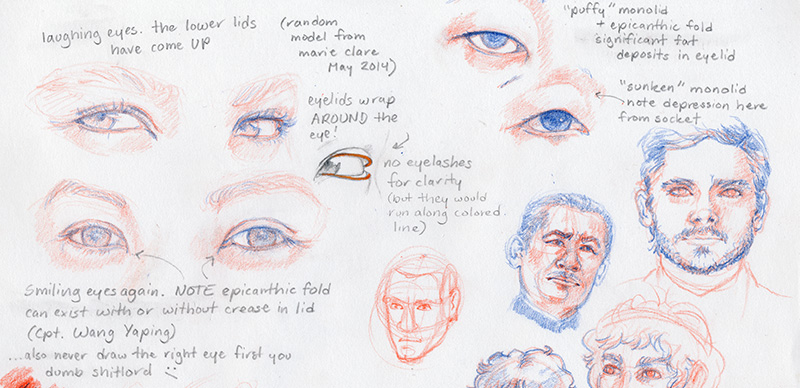 laughing eyes. the lower lids
have come UP
(random
model from
marie clare
May 2014)
"puffy" monolid
+ epicanthic fold
significant fat
deposits in eyelid
"sunken" monolid
note depression here
from socket
eyelids wrap
AROUND the
eye!
no eyelashes
for clarity
(but they would
run along colored
line)
Smiling eyes again. NOTE epicanthic fold
can exist with or without crease in lid
(Cpt. Wang Yaping)
...also never draw the right eye first you
dumb shitlord :(